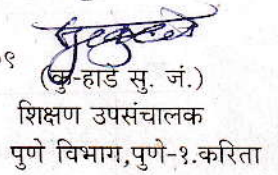 ९
(कु-हाडे सु. जं.)
शिक्षण उपसंचालक
पुणे विभाग,पुणे-१.करिता